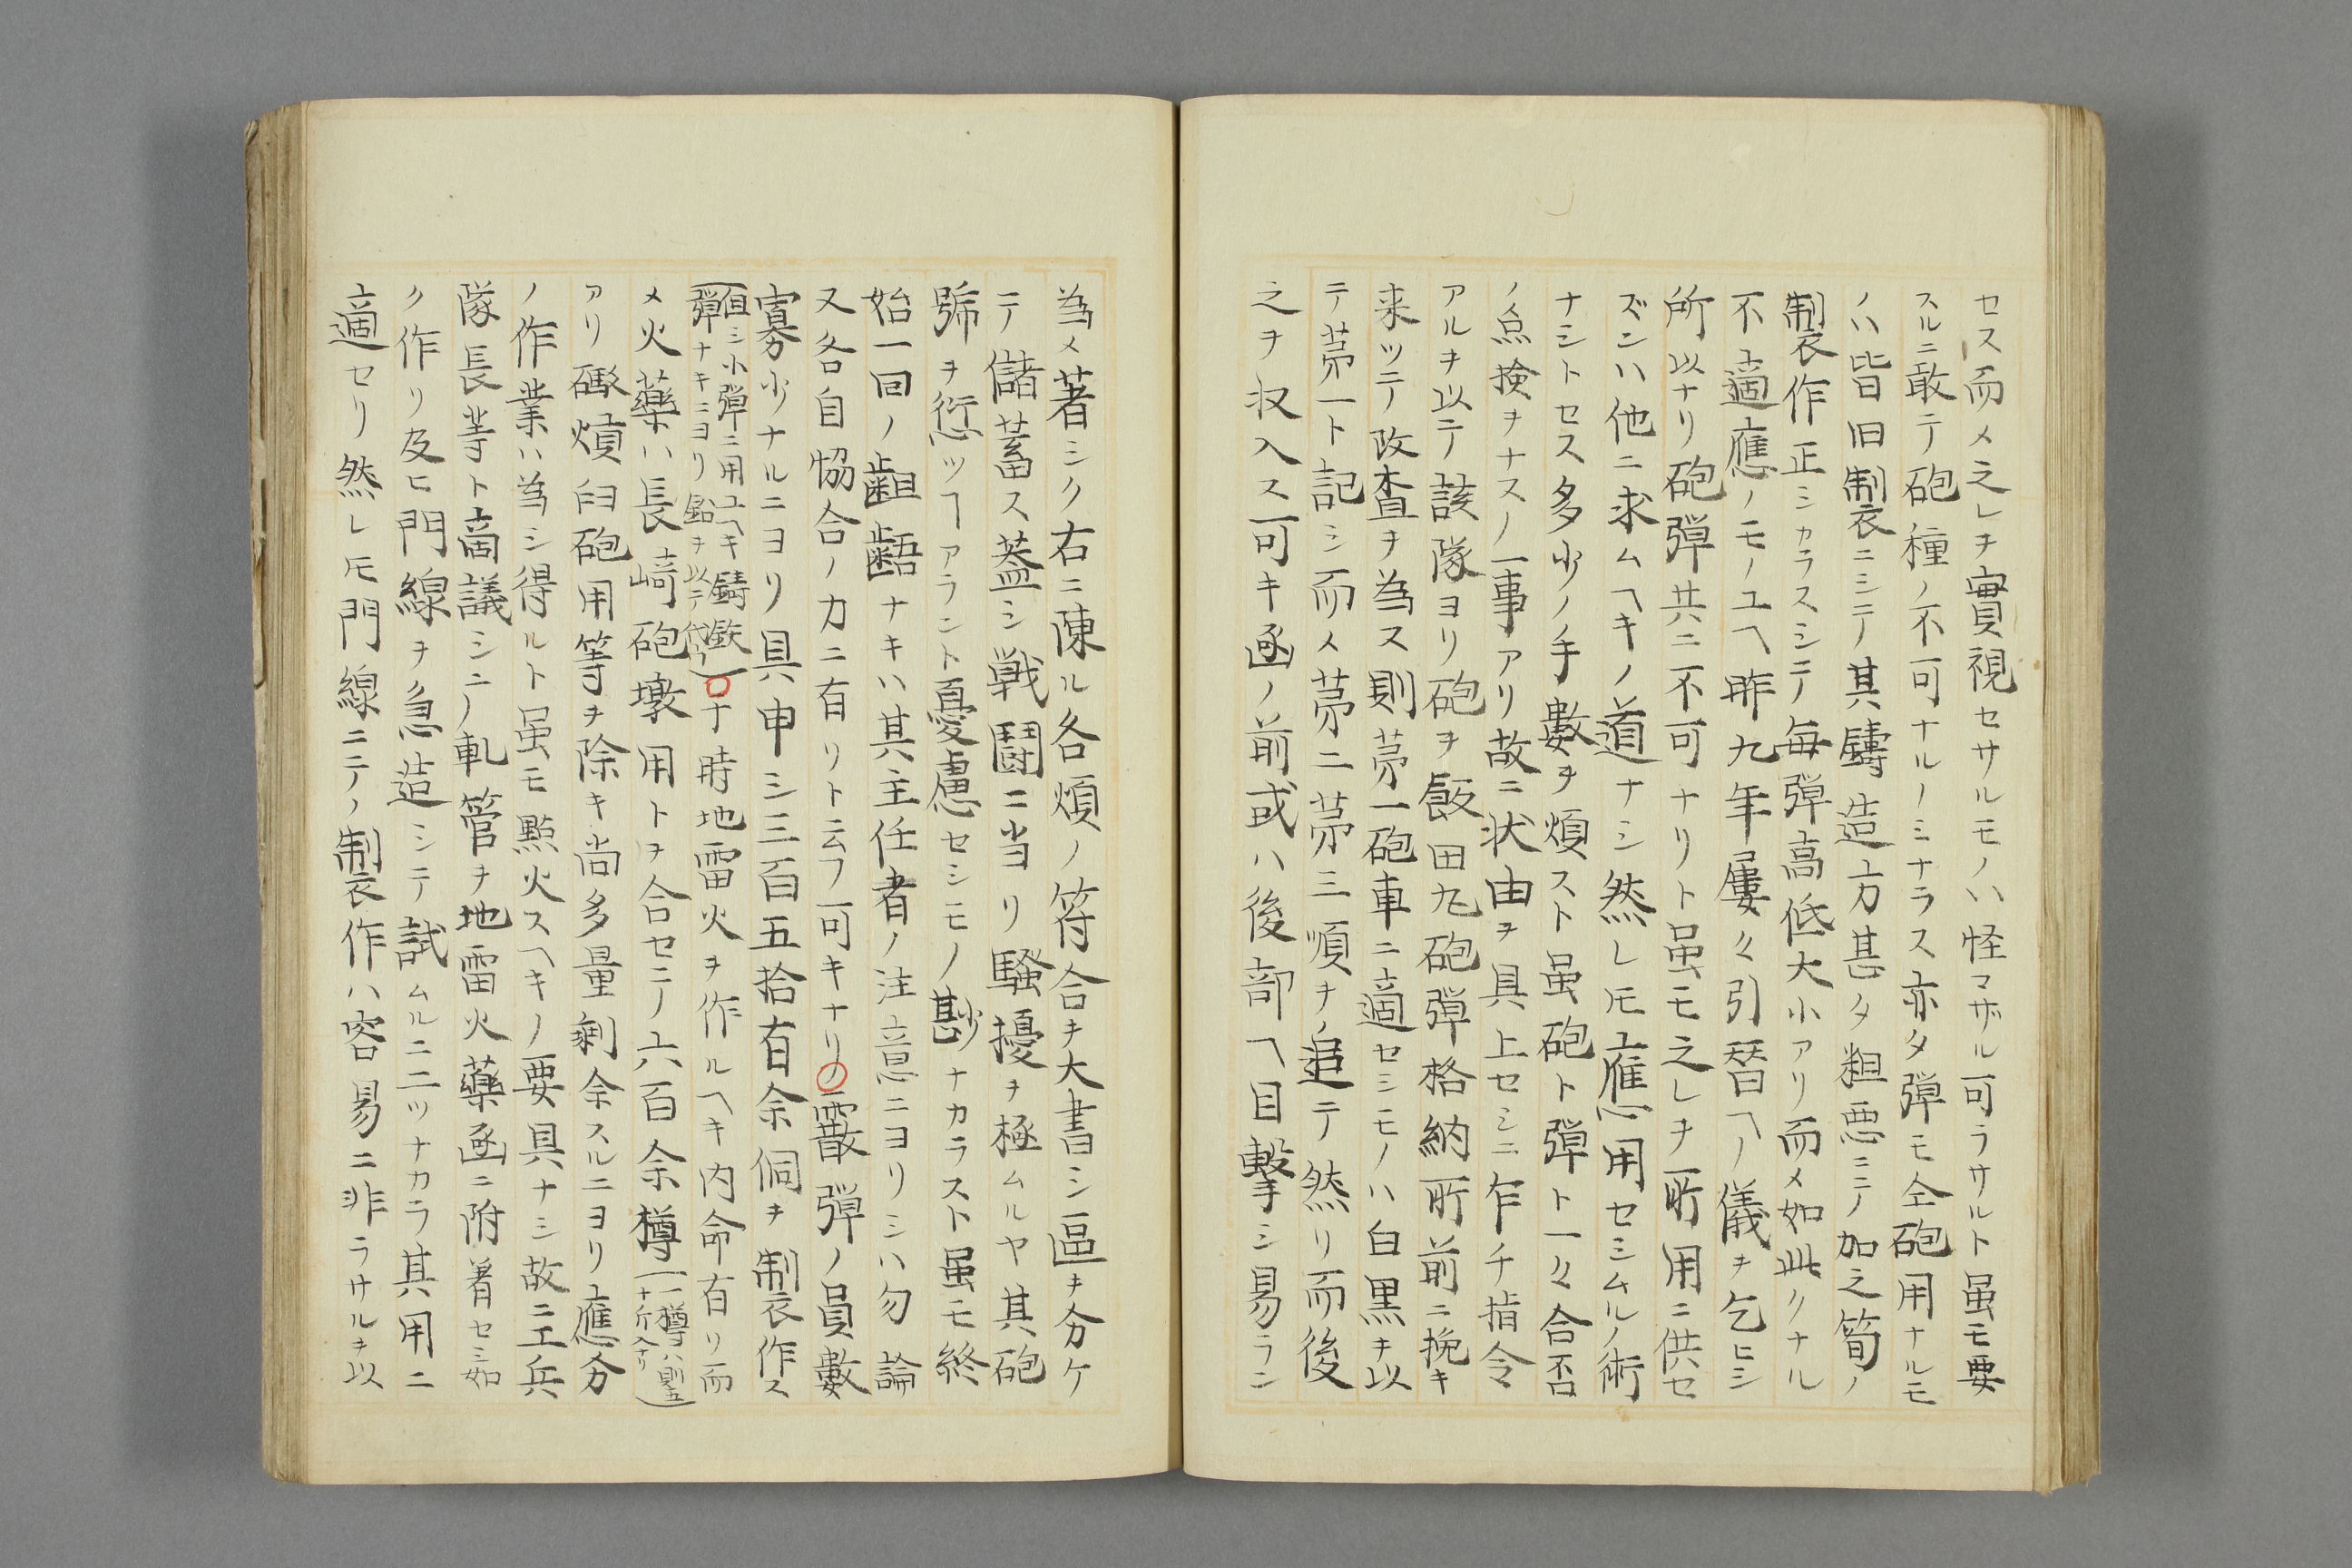 セス而メ之レヲ實視セサルモノハ怪マザル可ラサルト虽モ要
スルニ敢テ砲種ノ不可ナルノミナラス亦タ彈モ全砲用ナルモ
ノハ皆旧製ニシテ其鑄造方甚タ粗悪ニシテ加之筒ノ
製作正シカラスシテ毎彈高低大小アリ而メ如此クナル
不適應ノモノユヘ昨九年屢々引替ヘノ儀ヲ乞ヒシ
所以ナリ砲彈共ニ不可ナリト虽モ之レヲ所用ニ供セ
ズンハ他ニ求ムヘキノ道ナシ然レ𪜈應用セシムルノ術
ナシトセス多少ノ手數ヲ煩スト虽砲ト彈ト一々合否
ノ点検ヲナスノ一事アリ故ニ状由ヲ具上セシニ乍チ指令
アルヲ以テ該隊ヨリ砲ヲ飯田丸砲彈格納所前ニ挽キ
来ツテ改査ヲ為ス則苐一砲車ニ適セシモノハ白黒ヲ以
テ苐一ト記シ而メ苐二苐三順ヲ追テ然リ而後
之ヲ収入ス可キ凾ノ前或ハ後部ヘ目撃シ易ラン
為メ著シク右ニ陳ル各煩ノ符合ヲ大書シ區ヲ分ケ
テ儲蓄ス蓋シ戦闘ニ当リ騒擾ヲ極ムルヤ其砲
號ヲ愆ツヿアラント憂慮セシモノ尠ナカラスト虽モ終
始一回ノ齟齬ナキハ其主任者ノ注意ニヨリシハ勿論
又各自協合ノ力ニ有リト云フ可キナリ○霰彈ノ員數
寡少ナルニヨリ具申シ三百五拾有余個ヲ製作ス
（但シ小彈ニ用ユヘキ鑄鉄
彈ナキニヨリ鉛ヲ以テ代フ）○于時地雷火ヲ作ルヘキ内命有リ而
メ火藥ハ長崎砲墩用トヲ合セテ六百余樽（一樽ハ則
十斤入ナリ）
アリ礮煩臼砲用等ヲ除キ尚多量剰余スルニヨリ應分
ノ作業ハ為シ得ルト虽モ點火スヘキノ要具ナシ故ニ工兵
隊長等ト啇議シテ軋管ヲ地雷火藥凾ニ附着セシ如
ク作リ及ヒ門線ヲ急造シテ試ムルニ二ツナカラ其用ニ
適セリ然レ𪜈門線ニテノ製作ハ容易ニ非ラサルヲ以